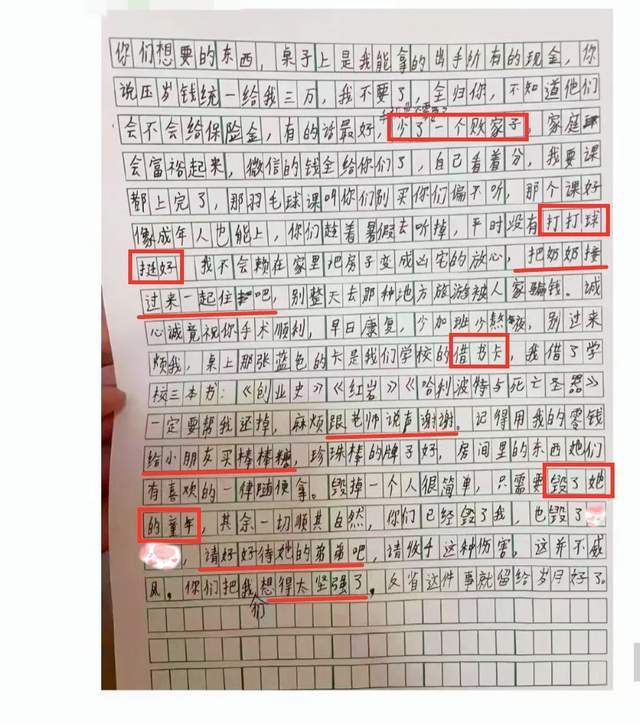 你们想要的东西，桌子上是我能拿的出手所有的现金，你
说压岁钱统一给我三万，我不要了，全归你，不知道他们
会不会给保险金，有的话最好，少了一个败家子，家庭
会富裕起来，微信的钱全给你们了，自己看着分，我要课
都上完了，那羽毛球课叫你们别买你们偏不听，那个课好
像成年人也能上，你们趁着暑假去听掉，平时没有打打球
挺好 我不会赖在家里把房子变成凶宅的放心，把奶奶接
过来一起住吧，别整天去那种地方旅游被人家骗钱。诚
心诚竟祝你手术顺利，早日康复，少加班少熬夜，别过来
烦我，桌上那张蓝色的卡是我们学校的借书卡，我借了学
校三本书：《创业史》《红岩》《哈利波特与死亡圣器》
一定要帮我还掉，麻烦跟老师说声谢谢。记得用我的零钱
给小朋友买棒棒糖，珍珠棒的牌子好，房间里的东西她们
有喜欢的一律随便拿。毁掉一个人很简单，只需要毁了她
的童年，其余一切顺其自然，你们已经毁了我，也毁了
，请好好待她的弟弟吧，请收手这种伤害，这并不威
风，你们把我们想得太坚强了，反省这件事就留给岁月好了。